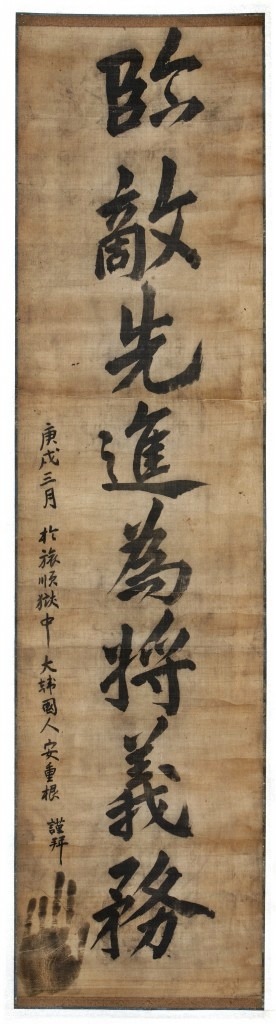 臨敵先進為將義務
庚戌三月 於旅順獄中 大韓國人安重根 謹拜